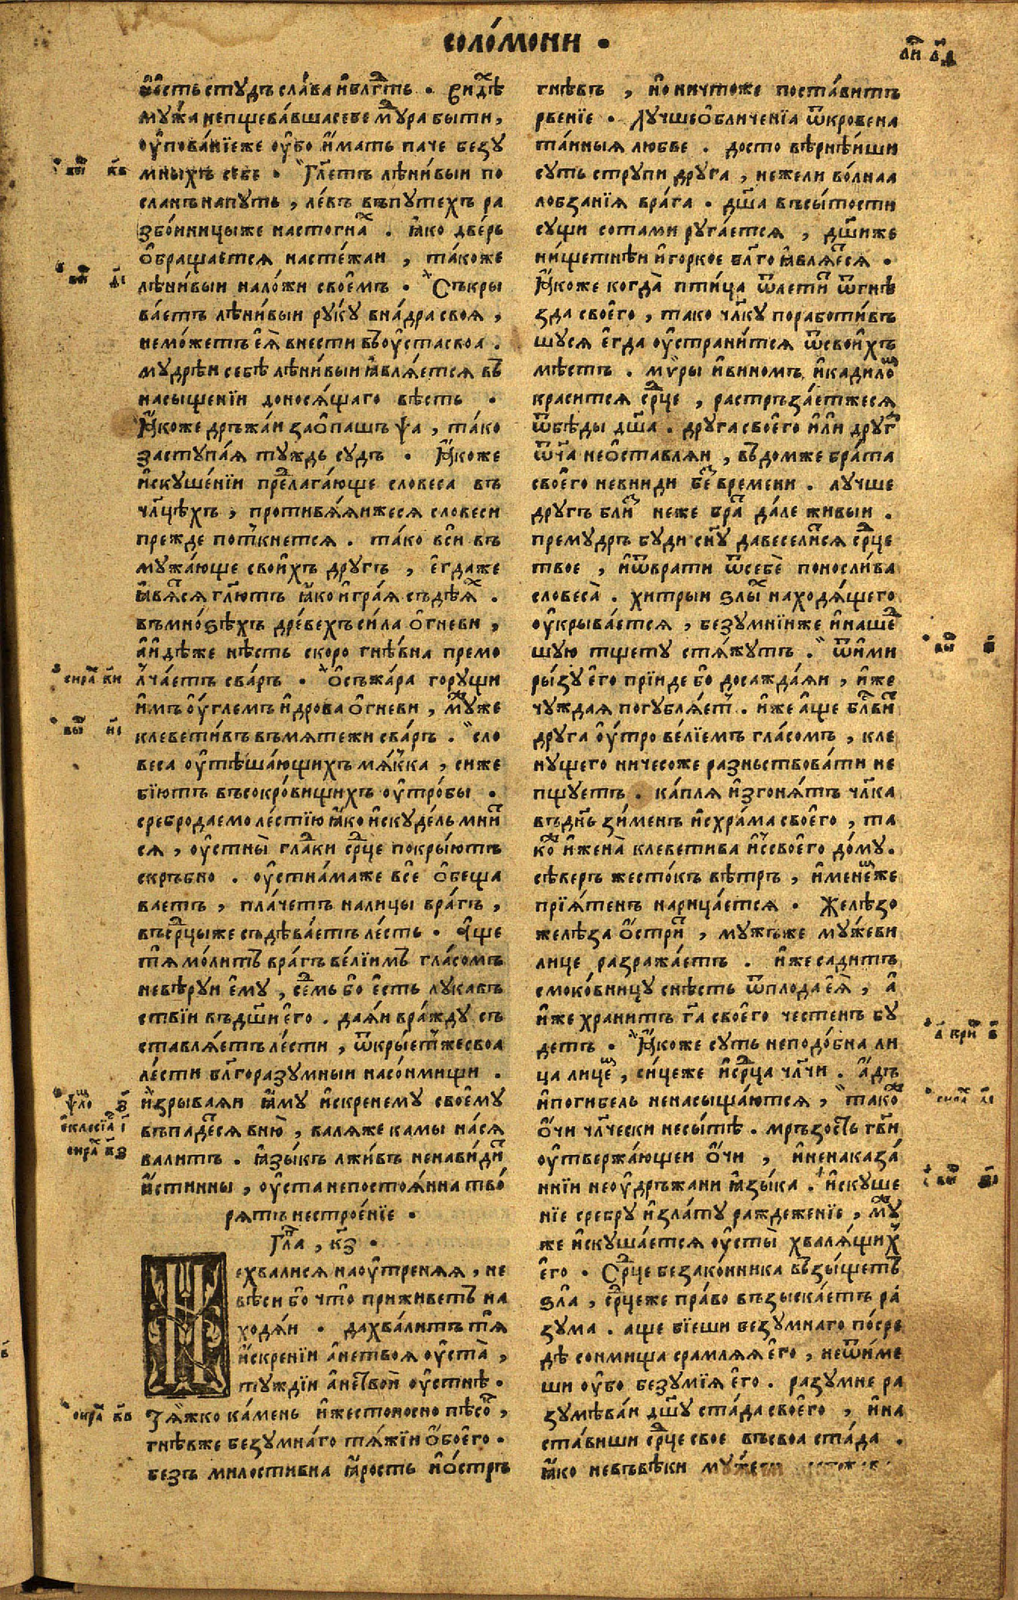 соло́мони •
но́сть стꙋдъ сла́ва и҆бл҃гть . Ви́дѣ
мꙋ́жа непщева́вша себе мꙋ́дра быти,
оу҆пова́нїе же оу҆бо и҆́мать паче безꙋ
мныхъ себе . Гл҃етъ лѣни́выи по
сланъ на пꙋть , ле́въ въ пꙋтехъ ра
збо́иници же на стогна́х . ꙗ҆́ко две́рь
ѻ҆браща́ется на сте́жаи , та́коже
лѣни́выи на ло́жи свое́мъ . Съкры
ва́етъ лѣни́выи рꙋ́кꙋ в на́дра своѧ ,
не мо́жетъ еѧ̀ внести въ оу҆ста своа .
мꙋдрѣи себѣ лѣни́выи ꙗ҆вля́ется въ
насыщенїи доносѧ́щаго вѣсть .
Ꙗ҆́коже дръжа́и за ѻ҆пашъ ѱа , та́ко
застꙋпа́ѧ тꙋждь сꙋдъ . Ꙗ҆́коже
и҆скꙋше́нїи пре́лага́юще словеса въ
чл҃цѣхъ , противлѧ́ѧиже сѧ словеси
прежде пот́кнетсѧ . та́ко вси въ
мꙋжа́юще свои҆́хъ дрꙋгъ , е҆гда же
ꙗ҆вѧ́сѧ гл҃ютъ ꙗ҆́ко и҆гра́ѧ съдѣ́ѧх .
въ мно́ѕѣхъ дре́вехъ си́ла ѻ҆гневи ,
а҆и҆дѣже нѣсть скоро гнѣ́вна премо
лча́етъ сва́ръ . Ѻ҆съжа́ра горꙋщи
и҆мъ оу҆́глемъ и҆ дрова ѻ҆гневи , мꙋ́же
клевети́въ въ мѧтежи сва́ръ . сло
веса оу҆тѣша́ющихъ мѧ́кка , си же
бїю́тъ въ сокро́вищихъ оу҆тро́бы .
сребро даемо ле́стїю ꙗ҆́ко и҆скꙋде́ль мни́т
сѧ , оу҆стны̀ гла́ки ср҃це покры́ютъ
скръбно . оу҆стнама же все ѻ҆беща
ваетъ , пла́четъ на лицы вра́гъ ,
въ ср҃цы же съдѣва́етъ ле́сть . А҆ще
тѧ мо́литъ вра́гъ ве́лїимъ гла́сомъ
не вѣрꙋи е҆мꙋ , се́мь бо е҆сть лꙋкавъ
ствїи въ дш҃и е҆го . даѧи вра́ждꙋ съ
ставлѧ́етъ ле́сти , ѿкры́ет же своа
ле́сти бл҃горазꙋмныи на со́нмищи .
и҆зрываѧи ꙗ҆́мꙋ и҆скренемꙋ свое́мꙋ
въпаде́сѧ в ню̀ , валѧ же камы на сѧ
валитъ . ꙗ҆зы́къ лжи́въ ненави́дит
и҆́стинны , оу҆ста непостоѧ́нна тво
рѧ́тъ нестрое́нїе .
Гл҃а , к҃з .
Не хвалисѧ на оу҆тренѧѧ , не
вѣси бо что̀ приживе́тъ на
ходѧ́и . да хва́литъ тѧ̀
и҆́скренїи а҆ не твоѧ оу҆ста̀ ,
тꙋждїи а҆ не твои оу҆стнѣ .
Тѧ́жко ка́мень и҆ же́стоносно пѣсо́к ,
гнѣв же безꙋмна́го тѧ́жїи ѻ҆бое́го .
безъ милостивна ꙗ҆́рость и҆ ѻ҆́стръ
гнѣвъ , но ничтоже поста́витъ
рве́нїе . Лꙋ́чше ѻ҆бличе́нїа ѿкровена
та́нныѧ любве . досто вѣрнѣ́иши
сꙋть стрꙋпи дрꙋга , нежели во́лнаа
лобза́нїѧ вра́га . дш҃а въ сы́тости
сꙋщи сотами рꙋга́етсѧ , дш҃и же
нищетнѣи и҆ горкое бл҃го ꙗ҆влѧ́есѧ .
Ꙗ҆́коже когда̀ пти́ца ѿлети́т ѿ гнѣ
зда свое́го , тако чл҃кꙋ порабо́тивъ
шꙋсѧ е҆гда оу҆страни́тсѧ ѿ свои҆́хъ
мѣстъ . мѵ́ры и҆ виномъ и҆ кадило
краси́тсѧ ср҃це , растръза́етжесѧ
ѿ бѣды дш҃а . дрꙋга свое́го и҆ли дрꙋг
ѿч҃а не ѻ҆ставлѧи , въ дом же бра́та
свое́го не вниди без времени . лꙋчше
дрꙋгъ близ неже брат дале живыи .
премꙋдръ бꙋди сн҃ꙋ да веселитсѧ ср҃це
твое , и҆ ѿврати ѿ себѐ поносли́ва
словеса̀ . хитрыи ѕлых находѧ́щего
оу҆крыва́етсѧ , безꙋмнїи же и҆ нашед
шꙋю тщетꙋ стѧжꙋтъ . ѿи҆ми
ры́зꙋ е҆го прїиде бо досажда́ѧи , и҆же
чꙋждаѧ погꙋблѧ́ет . и҆же а҆ще бл҃ви́т
дрꙋга оу҆тро ве́лїемъ гла́сомъ , кле
нꙋщего ничесоже разнствова́ти не
пщꙋетъ . ка́плѧ и҆згонѧ́тъ чл҃ка
въ дн҃ь зи́менъ и҆с хра́ма свое́го , та
ко и҆ жена̀ клеветива и҆с свое́го до́мꙋ .
сѣверъ жесто́къ вѣтръ , и҆менем же
прїѧ́тенъ нарица́етсѧ . Желѣзо
желѣза ѻ҆́стрит , мꙋжъ же мꙋжеви
лице разража́етъ . и҆же садитъ
смоко́вницꙋ снѣсть ѿ плода еѧ̀ , а҆
и҆же хранитъ г҃а свое́го честенъ бꙋ
детъ . Ꙗ҆́коже сꙋть неподо́бна ли
ца лицем , си́це же и҆ ср҃ца чл҃чи . а҆́дъ
и҆ погибель не насыща́ютсѧ , тако
ѻ҆́чи чл҃чески несытѣ . мръзость гв҃и
оу҆твержа́ющеи ѻ҆́чи , и҆ ненаказа́
ннїи не оу҆дръжани ꙗ҆зы́ка . и҆скꙋше
нїе сребрꙋ и҆ зла́тꙋ раждеженїе , мꙋ́
же и҆скꙋша́етсѧ оу҆сты̀ хвалѧ́щих
е҆го . Ср҃це безако́нника възы́щетъ
ѕла , ср҃це же пра́во възыска́етъ ра́
зꙋма . аще бїеши безꙋмнаго по́сре
дѣ сонмища срамлѧѧ е҆го , не ѿиме
ши оу҆бо безꙋмїѧ е҆го . разꙋмне ра
зꙋмѣва́и дш҃ꙋ ста́да свое́го , и҆ на
ста́виши ср҃це свое въ своа ста́да .
ꙗ҆́ко не въ вѣки мꙋ́жеви